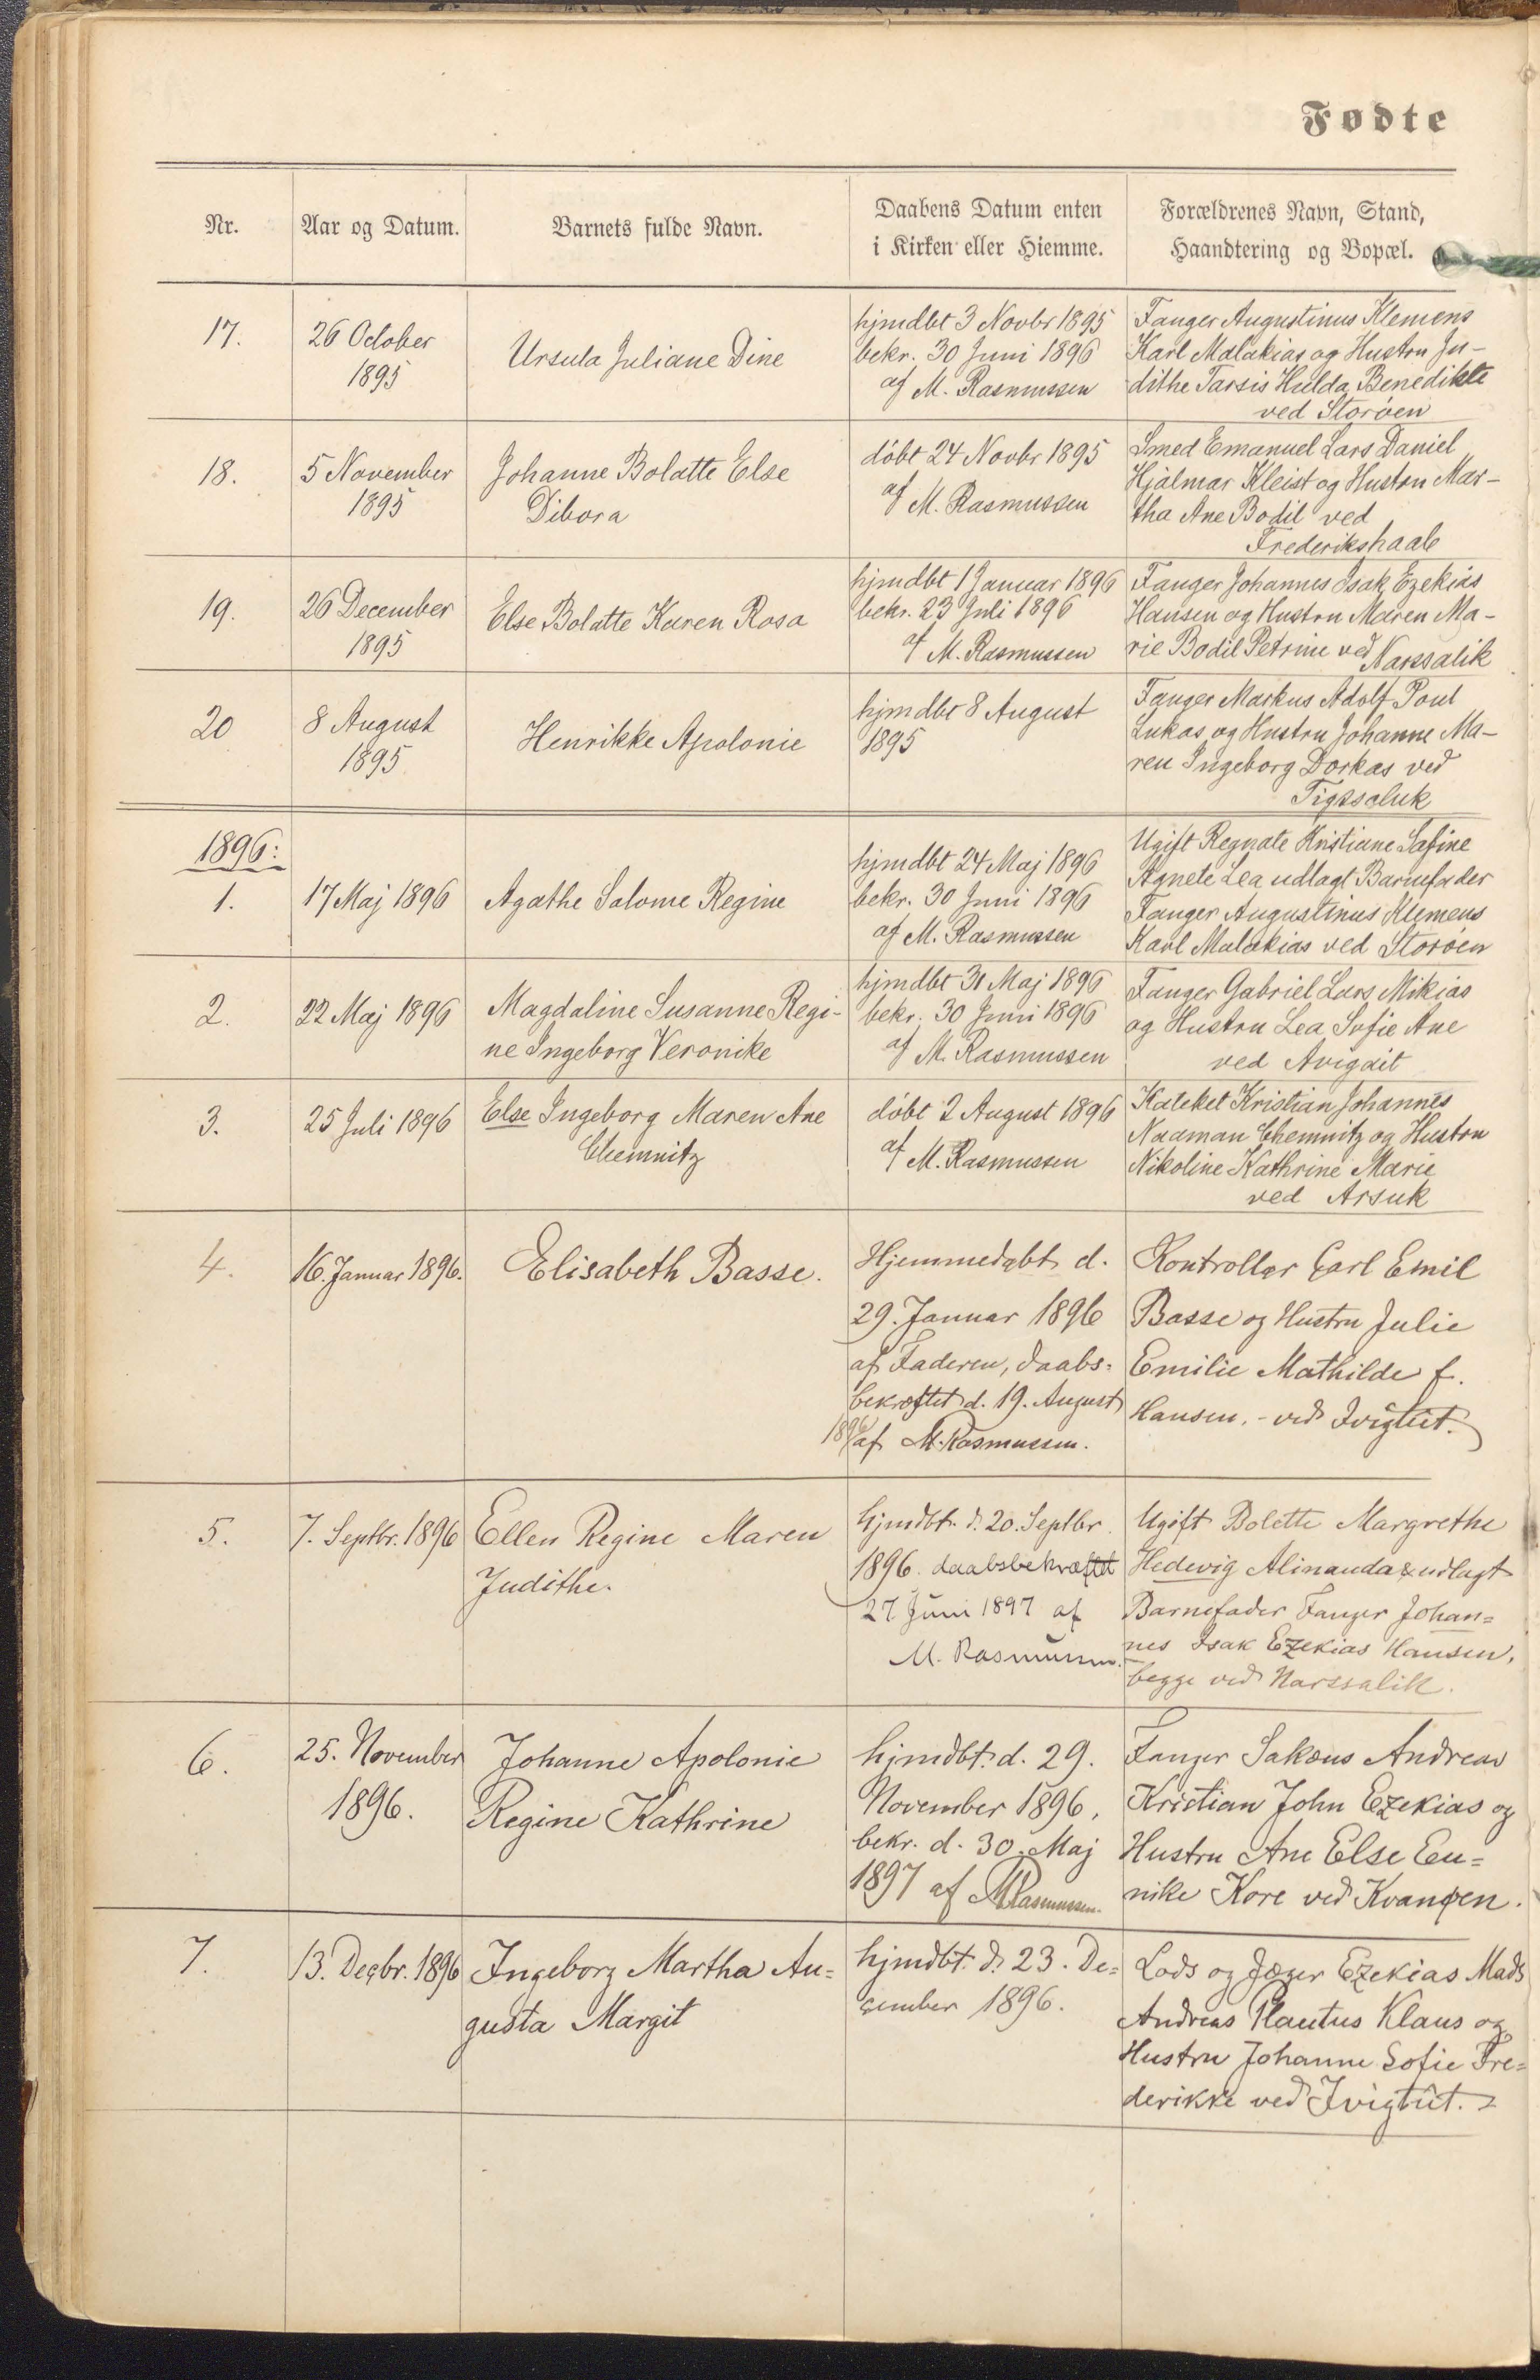 Fødte
Nr.
Aar og Datum.
Barnets fulde Navn.
Daabens Datum enten
i Kirken eller Hiemme.
Forældrenes Navn, Stand,
Haandtering og Bopæl.
17.
26 October
1895
Ursula Juliane Dine
hjmdbt 3 Novbr 1895
bekr. 30 Juni 1896
af M. Rasmussen
Fanger Augustinus Klemens
Karl Malakias og Hustru Ju-
dithe Tarsis Hulda Benedikte
ved Storøen
18.
5 November
1895
Johanne Bolatte Else
Dibora
döbt 24 Novbr 1895
af M. Rasmussen
Smed Emanuel Lars Daniel
Hjalmar Kleist og Hustru Mar-
tha Ane Bodil ved
Frederikshaab
19.
26 December
1895
Else Bolatte Karen Rosa
hjmdbt 1 Januar 1896
bekr. 23 Juli 1896
af M. Rasmussen
Fanger Johannes Isak Ezekias
Hansen og Hustru Maren Ma-
rie Bodil Petrine ved Narssalik
20
8 August
1895
Henrikke Apolonie
hjmdbt 8 August
1895
Fanger Markus Adolf Poul
Lukas og Hustru Johanne Ma-
ren Ingeborg Dorkas ved
Tigssaluk
1896:
1.
17 Maj 1896
Agathe Salome Regine
hjmdbt 24 Maj 1896
bekr. 30 Juni 1896
af M. Rasmussen
Ugift Regnate Kristiane Safine
Agnete Lea udlagt Barnefader
Fanger Augustinus Klemens
Karl Malakias ved Storöen
2.
22 Maj 1896
Magdaline Susanne Regi-
ne Ingeborg Veronike
hjmdbt 31 Maj 1896
bekr. 30 Juni 1896
af M. Rasmussen
Fanger Gabriel Lars Mikias
og Hustru Lea Sofie Ane
ved Avigait
3.
25 Juli 1896
Else Ingeborg Maren Ane
Chemnitz
döbt 2 August 1896
af M. Rasmussen
Kateket Kristian Johannes
Naaman Chemnitz og Hustru
Nikoline Kathrine Marie
ved Arsuk
4.
16. Januar 1896.
Elisabeth Basse.
Hjemmedøbt d.
29. Januar 1896
af Faderen, daabs-
bekræftet d. 19. August
1896 af M. Rasmussen.
Kontrollør Carl Emil
Basse og Hustru Julie
Emilie Mathilde f.
Hansen, - ved Ivigtût.
5.
7. Septbr. 1896
Ellen Regine Maren
Judithe.
hjmdbt. d. 20. Septbr.
1896. daabsbekræftet
27 Juni 1897 af
M. Rasmussen.
Ugift Bolette Margrethe
Hedevig Alinanda & udlagt
Barnefader Fanger Johan=
nes Isak Ezekias Hansen,
begge ved Narssalik.
6.
25. November
1896.
Johanne Apolonie
Regine Kathrine
hjmdbt. d. 29.
November 1896,
bekr. d. 30. Maj
1897 af M Rasmussen.
Fanger Sakæus Andreas
Kristian John Ezekias og
Hustru Ane Else Eu=
nike Kore ved Kvanøen.
7.
13. Decbr. 1896
Ingeborg Martha Au=
gusta Margit
hjmdbt. d. 23. De=
cember 1896.
Lods og Jæger Ezekias Mads
Andreas Plautus Klaus og
Hustru Johanne Sofie Fre=
derikke ved Ivigtût.